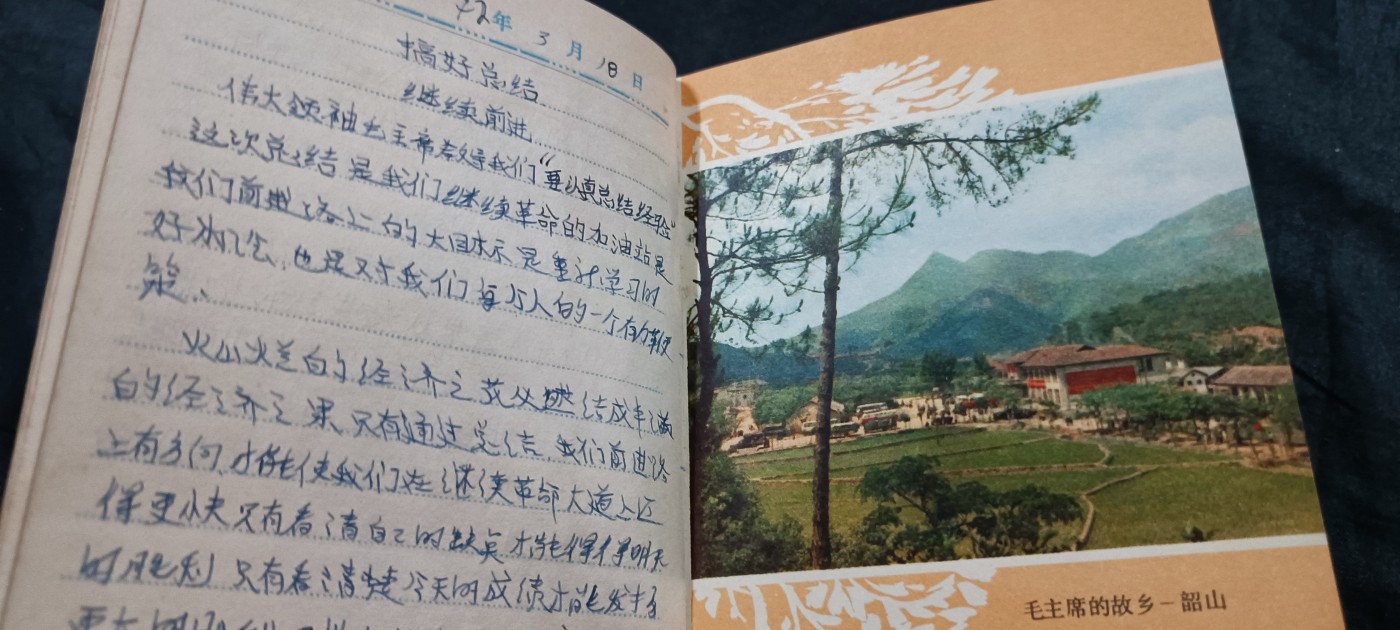 72年 3月 18日
搞好总结
继续前进
伟大领袖毛主席教导我们“要认真总结经验”
这次总结是我们继续革命的加油站是
我们前进路上的大目标示是重计学习的
好机会,也是对于我们每个人的一个有力鞭
策、
火山火兰白的经济之花必继结成丰满
白的经济之果只有通过总结我们前进路
上有方向才能使我们在继续革命大道上迈
得更快只有看清自己的缺点才能得得明天
的胜利 只有看清楚今天的成绩才能发扬
更大的
毛主席的故乡-韶山